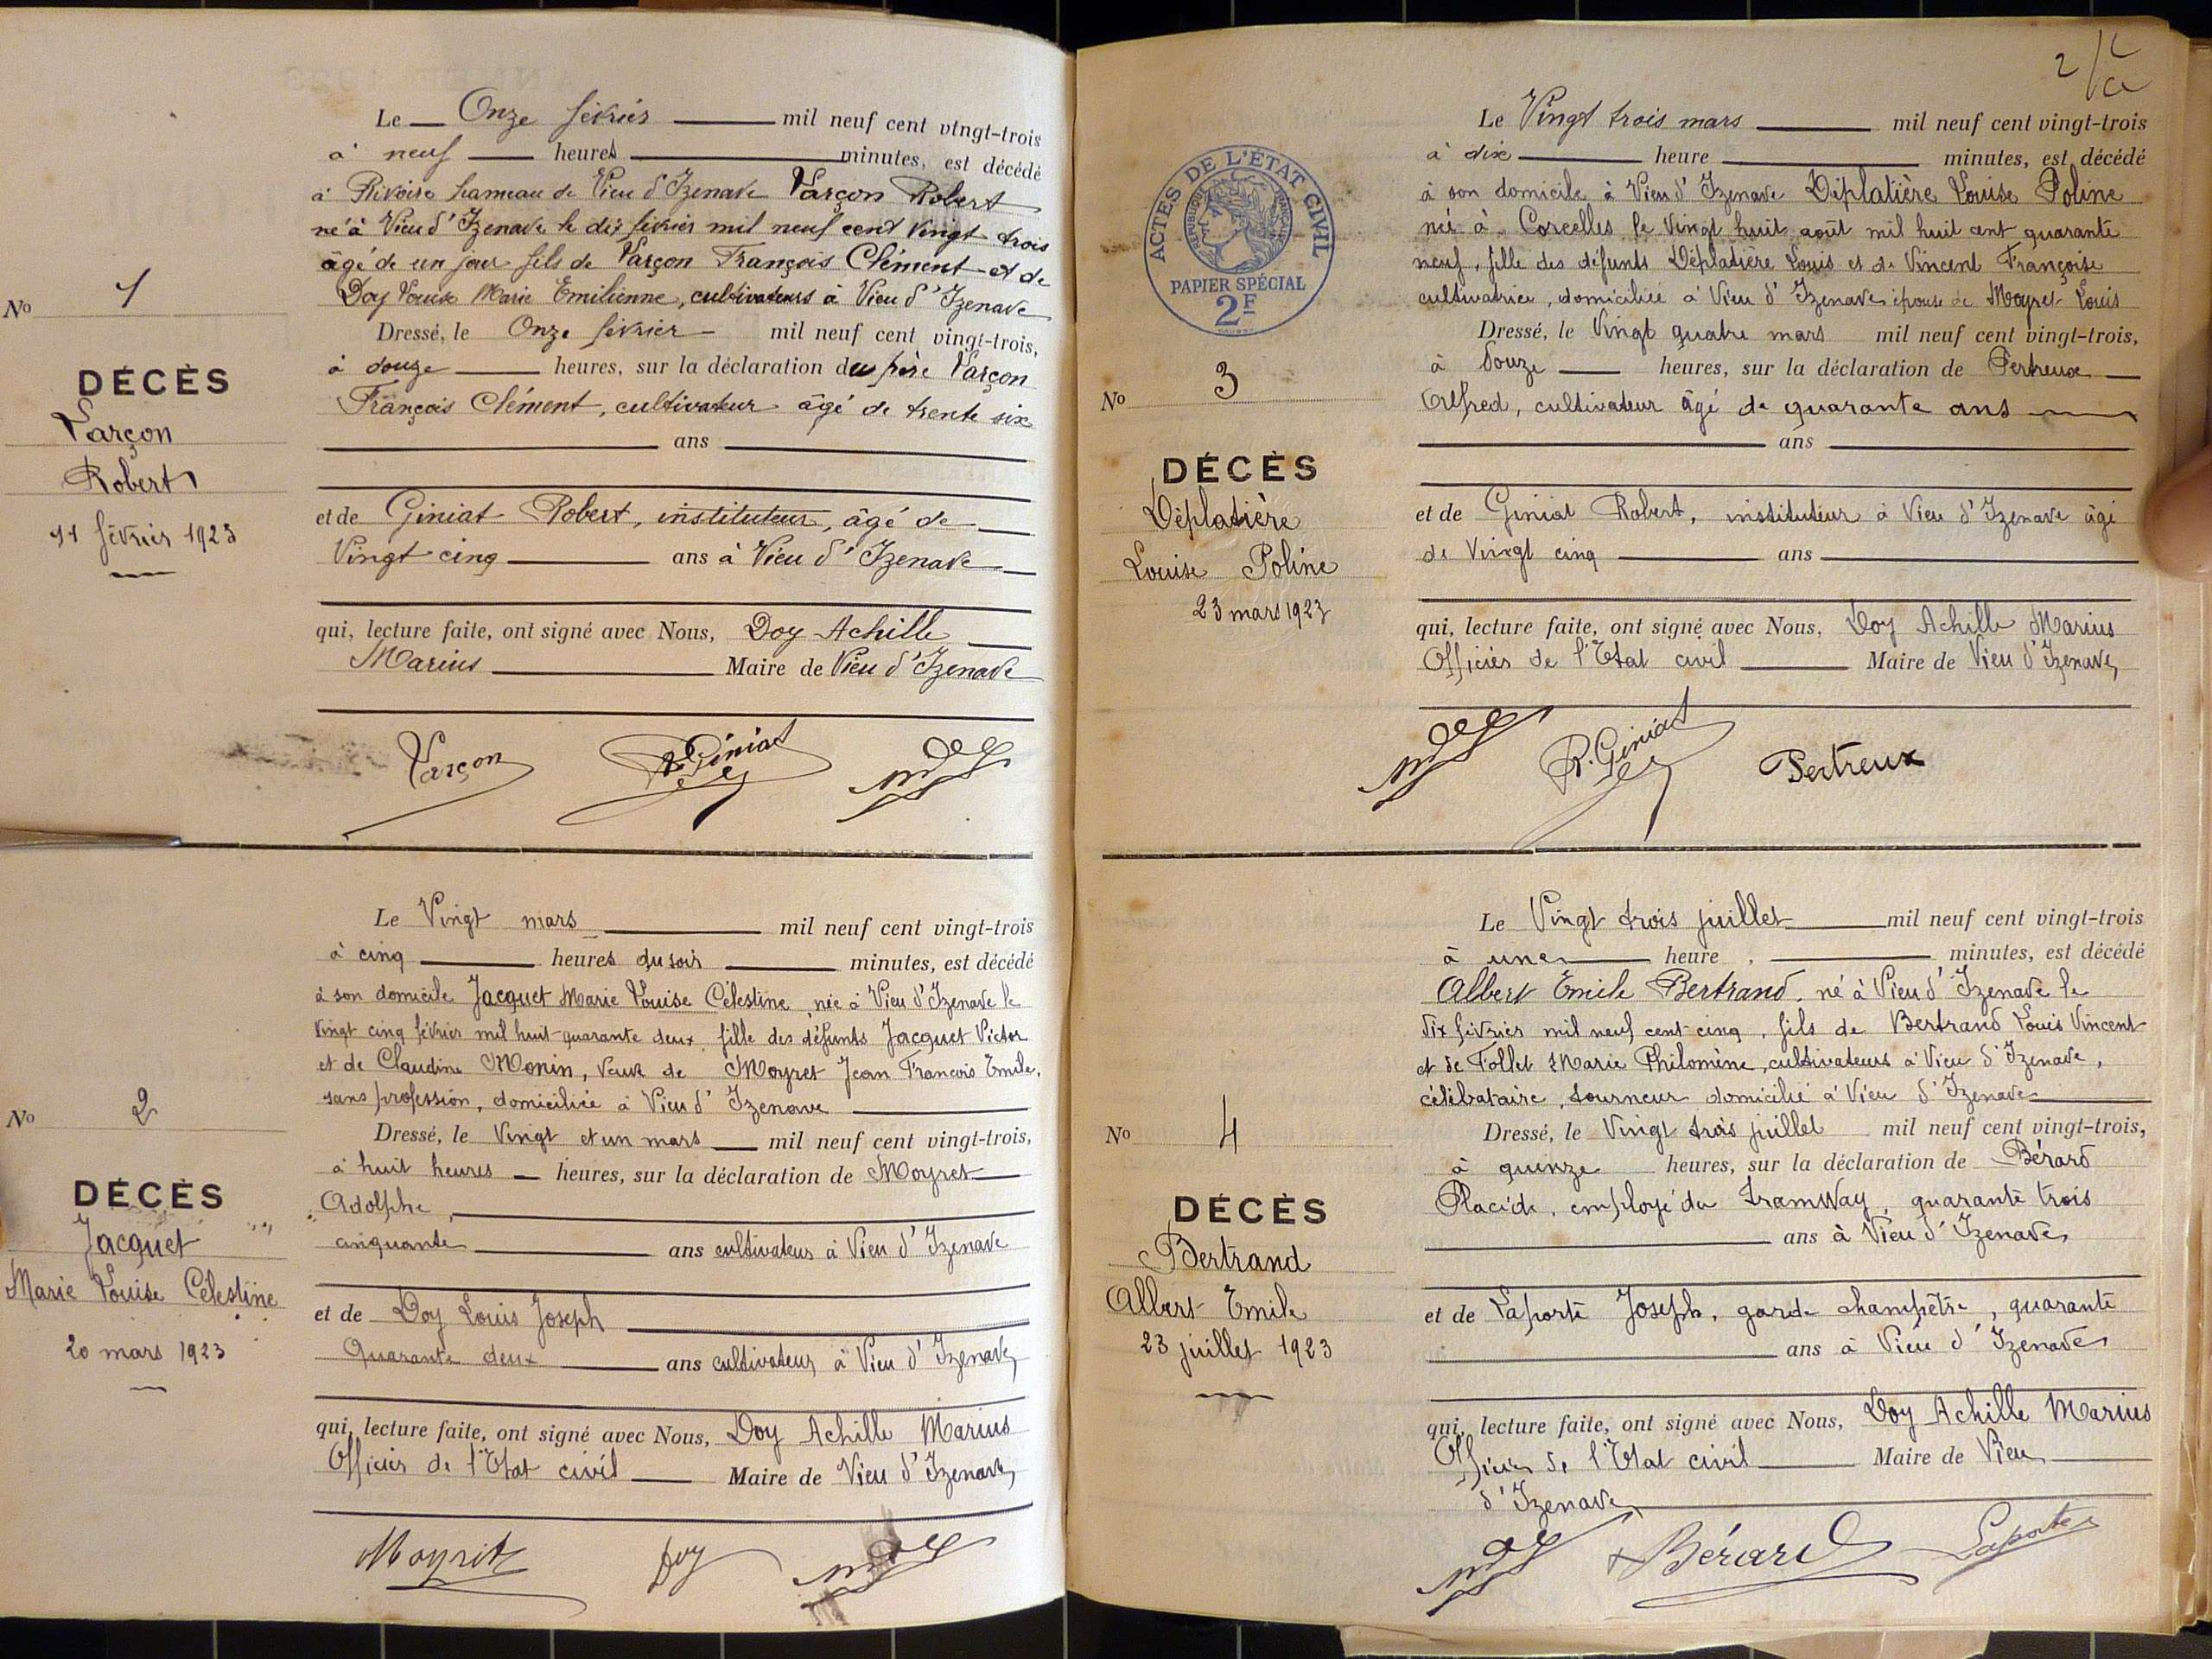 Le Onze février mil neuf cent vingt-trois
à neuf heures minutes, est décédé
à Rivoire hameau de Vieu d'Izenave Varçon Robert
né à Vieu d'Izenave le dix février mil neuf cent vingt trois
âgé de un jour fils de Varçon François Clément et de
Doy Louise Marie Emilienne, cultivateurs à Vieu d'Izenave
No 1
Dressé, le Onze février mil neuf cent vingt-trois,
à douze heures, sur la déclaration du père Varçon
DÉCÈS
François Clément, cultivateur âgé de trente six
Varçon
ans
Robert
11 février 1923
et de Giniat Robert, instituteur, âgé de
Vingt cinq ans à Vieu d'Izenave
qui, lecture faite, ont signé avec Nous, Doy Achille
Marius Maire de Vieu d'Izenave
Varçon R. Giniat
Le Vingt mars mil neuf cent vingt-trois
à cinq heures du soir minutes, est décédé
à son domicile Jacquet Marie Louise Célestine née à Vieu d'Izenave le
vingt cinq février mil huit quarante deux fille des défunts Jacquet Victor
et de Claudine Monin, veuve de Moyret Jean François Emile,
sans profession, domiciliée à Vieu d'Izenave
No 2
Dressé, le Vingt et un mars mil neuf cent vingt-trois,
à huit heures heures, sur la déclaration de Moyret
DÉCÈS
Adolphe,
Jacquet
cinquante ans cultivateur à Vieu d'Izenave
Marie Louise Célestine
et de Doy Louis Joseph
20 mars 1923
Quarante deux ans cultivateur, à Vieu d'Izenave
qui, lecture faite, ont signé avec Nous, Doy Achille Marius
Officier de l'Etat civil Maire de Vieu d'Izenave,
Moyret Doy
2
Le Vingt trois mars mil neuf cent vingt-trois
à dix heure minutes, est décédé
à son domicile à Vieu d'Izenave Déplatière Louise Poline
née à Corcelles le Vingt huit août mil huit cent quarante
neuf, fille des défunts Déplatière Louis et de Vincent Françoise
cultivatrice, domiciliée à Vieu d'Izenave épouse de Moyret Louis
ACTES DE L'ÉTAT CIVIL
RÉPUBLIQUE FRANÇAISE
PAPIER SPÉCIAL
2F
Dressé, le Vingt quatre mars mil neuf cent vingt-trois,
à Douze heures, sur la déclaration de Pertreux
No 3
Alfred, cultivateur âgé de quarante ans
ans
DÉCÈS
Déplatière
Louise Poline
23 mars 1923
et de Giniat Robert, instituteur à Vieu d'Izenave âgé
de Vingt cinq ans
qui, lecture faite, ont signé avec Nous, Doy Achille Marius
Officier de l'Etat civil Maire de Vieu d'Izenave,
R. Giniat Pertreux
Le Vingt trois juillet mil neuf cent vingt-trois
à une heure minutes, est décédé
Albert Emile Bertrand, né à Vieu d'Izenave le
dix février mil neuf cent cinq, fils de Bertrand Louis Vincent
et de Follet Marie Philomène, cultivateurs à Vieu d'Izenave,
célibataire, tourneur domicilié à Vieu d'Izenave
No 4
Dressé, le Vingt trois juillet mil neuf cent vingt-trois,
à quinze heures, sur la déclaration de Bérard
DÉCÈS
Placide, employé du tramway, quarante trois
ans à Vieu d'Izenave,
Bertrand
Albert Emile
23 juillet 1923
et de Laporte Joseph, garde champêtre, quarante
ans à Vieu d'Izenave
qui, lecture faite, ont signé avec Nous, Doy Achille Marius
Officier de l'Etat civil Maire de Vieu
d'Izenave,
Bérard Laporte